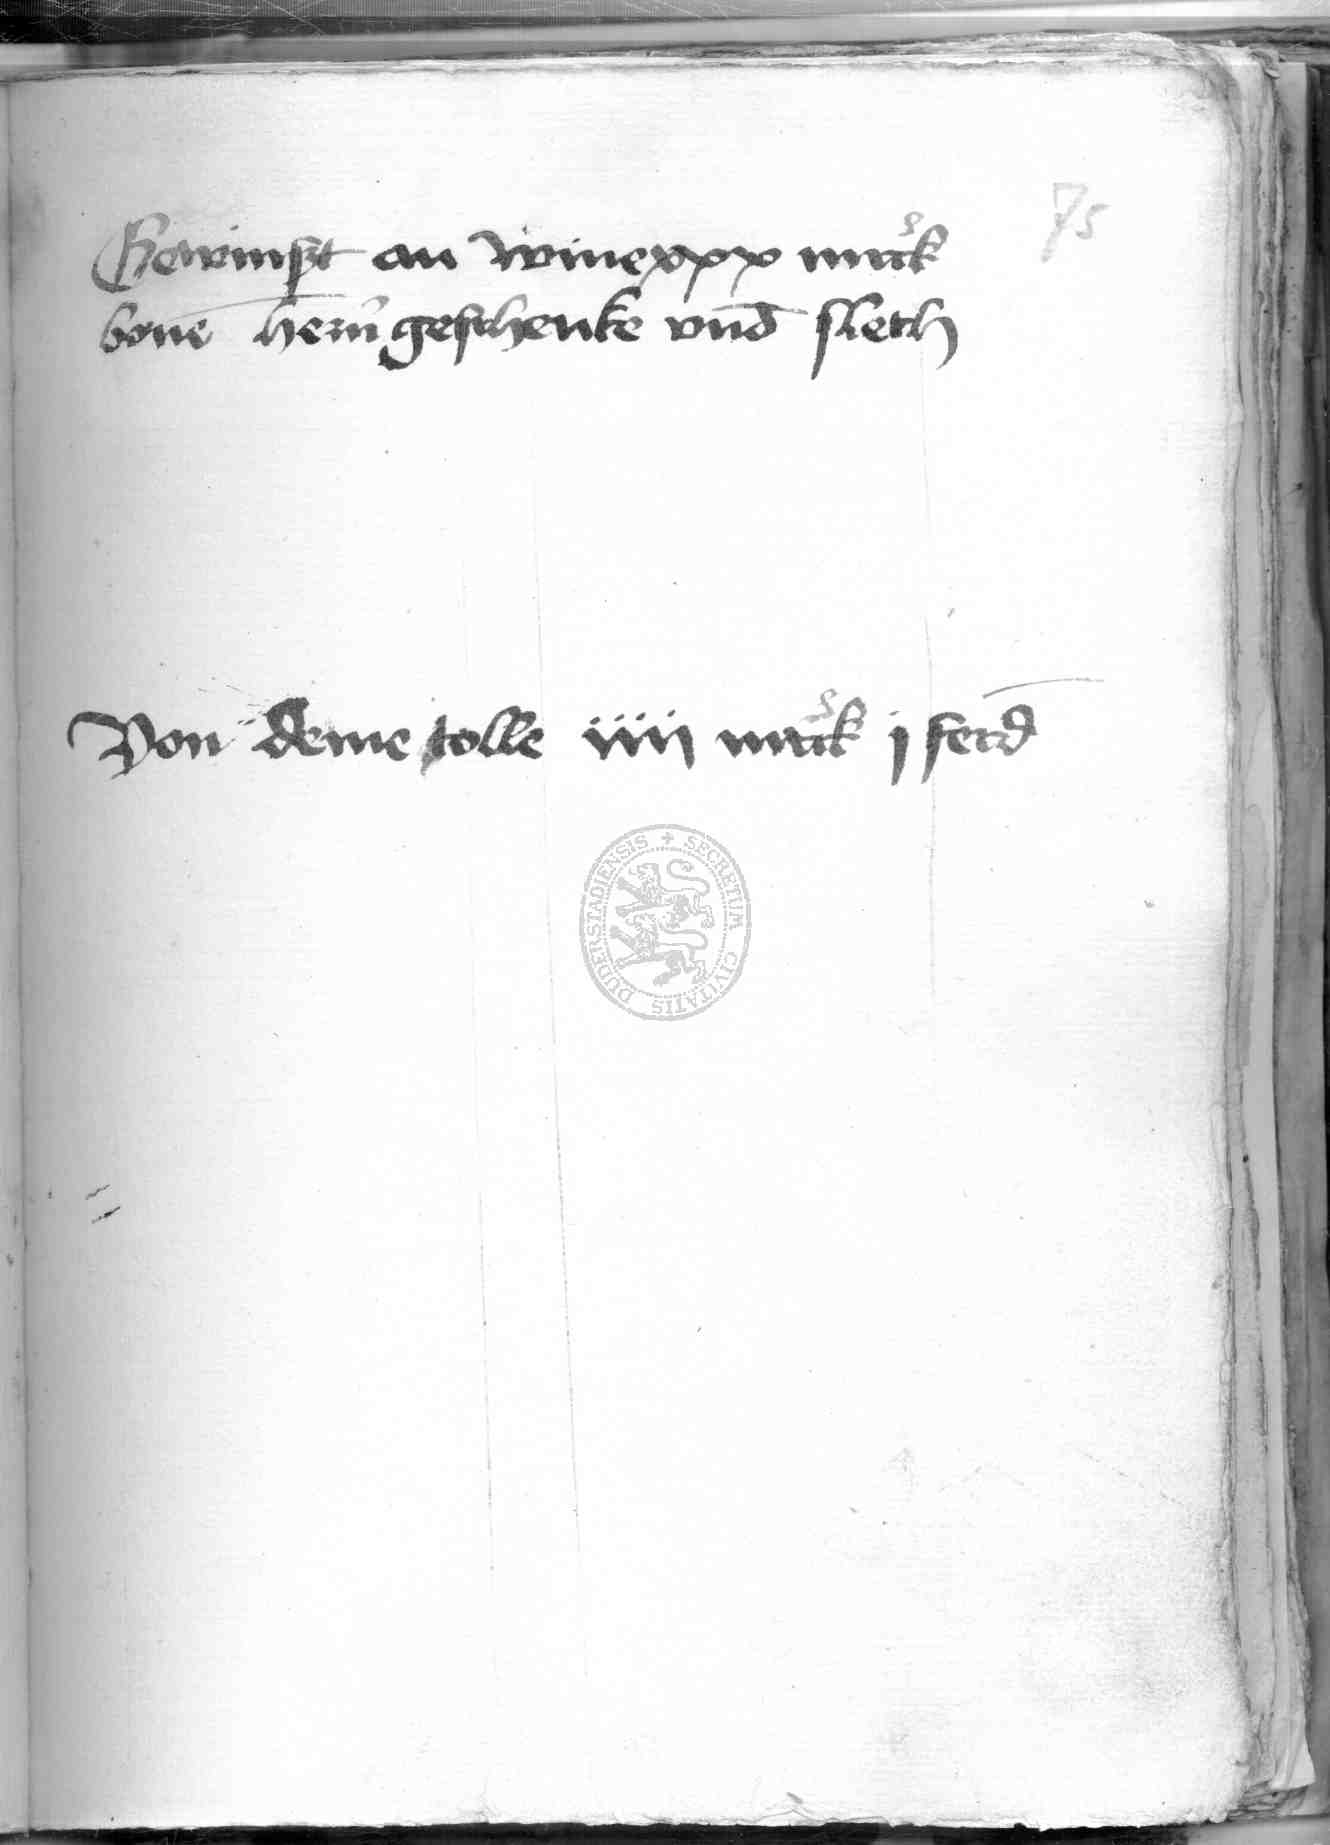 75
Gewinszt an wine xxx marck
bouē herñ geschenke vnd sleth
Von deme tolle iiij marck j ferd
SECRETUM CIVITATIS DUDERSTADIENSIS